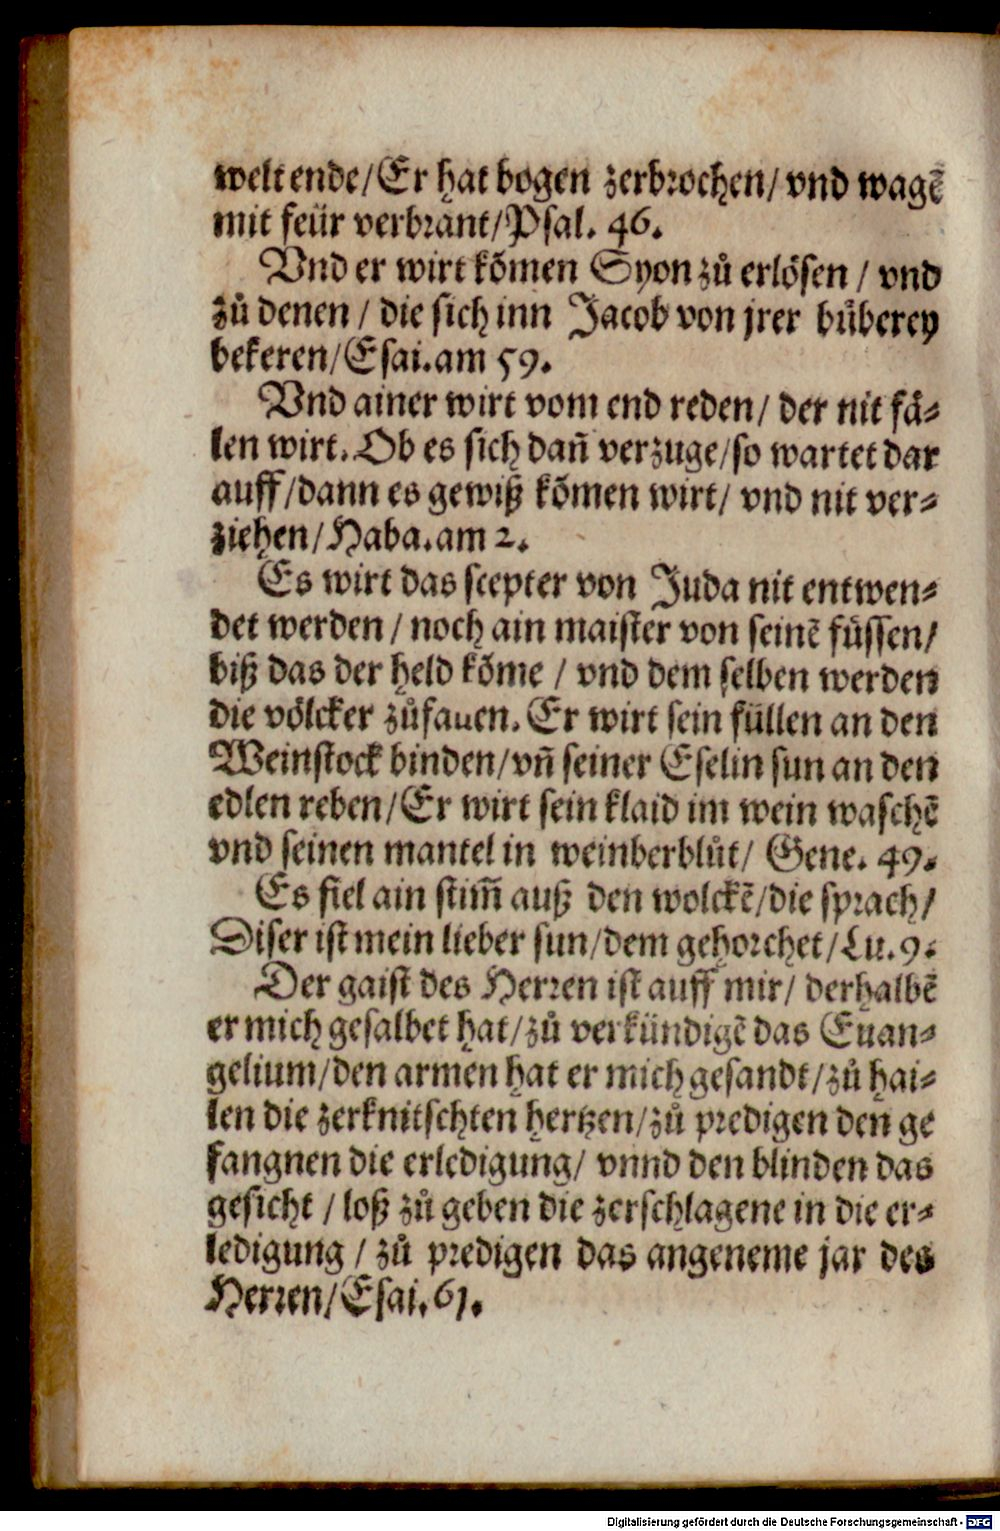 welt ende/Er hat bogen zerbrochen/ vnd wagē
mit feür verbrant/Psal. 46.
Vnd er wirt kõmen Syon zů erlösen / vnd
zů denen / die sich inn Jacob von jrer bůberey
bekeren/Esai.am 59.
Vnd ainer wirt vom end reden/ der nit fä-
len wirt. Ob es sich dañ verzuge/so wartet dar
auff/dann es gewiß kõmen wirt/ vnd nit ver-
ziehen/Haba.am 2.
Es wirt das scepter von Juda nit entwen-
det werden / noch ain maister von seinē füssen/
biß das der held kõme / vnd dem selben werden
die völcker zůfallen. Er wirt sein füllen an den
Weinstock binden/vñ seiner Eselin sun an den
edlen reben/Er wirt sein klaid im wein waschē
vnd seinen mantel in weinberblůt/ Gene. 49.
Es fiel ain stim̃ auß den wolckē/die sprach/
Diser ist mein lieber sun/dem gehorchet/Lu.9.
Der gaist des Herren ist auff mir/ derhalbē
er mich gesalbet hat/zů verkündigē das Euan-
gelium/den armen hat er mich gesandt/zů hai-
len die zerknitschten hertzen/zů predigen den ge
fangnen die erledigung/ vnnd den blinden das
gesicht / loß zů geben die zerschlagene in die er-
ledigung / zů predigen das angeneme jar des
Herren/Esai.61.
Digitalisierung gefördert durch die Deutsche Forschungsgemeinschaft - DFG